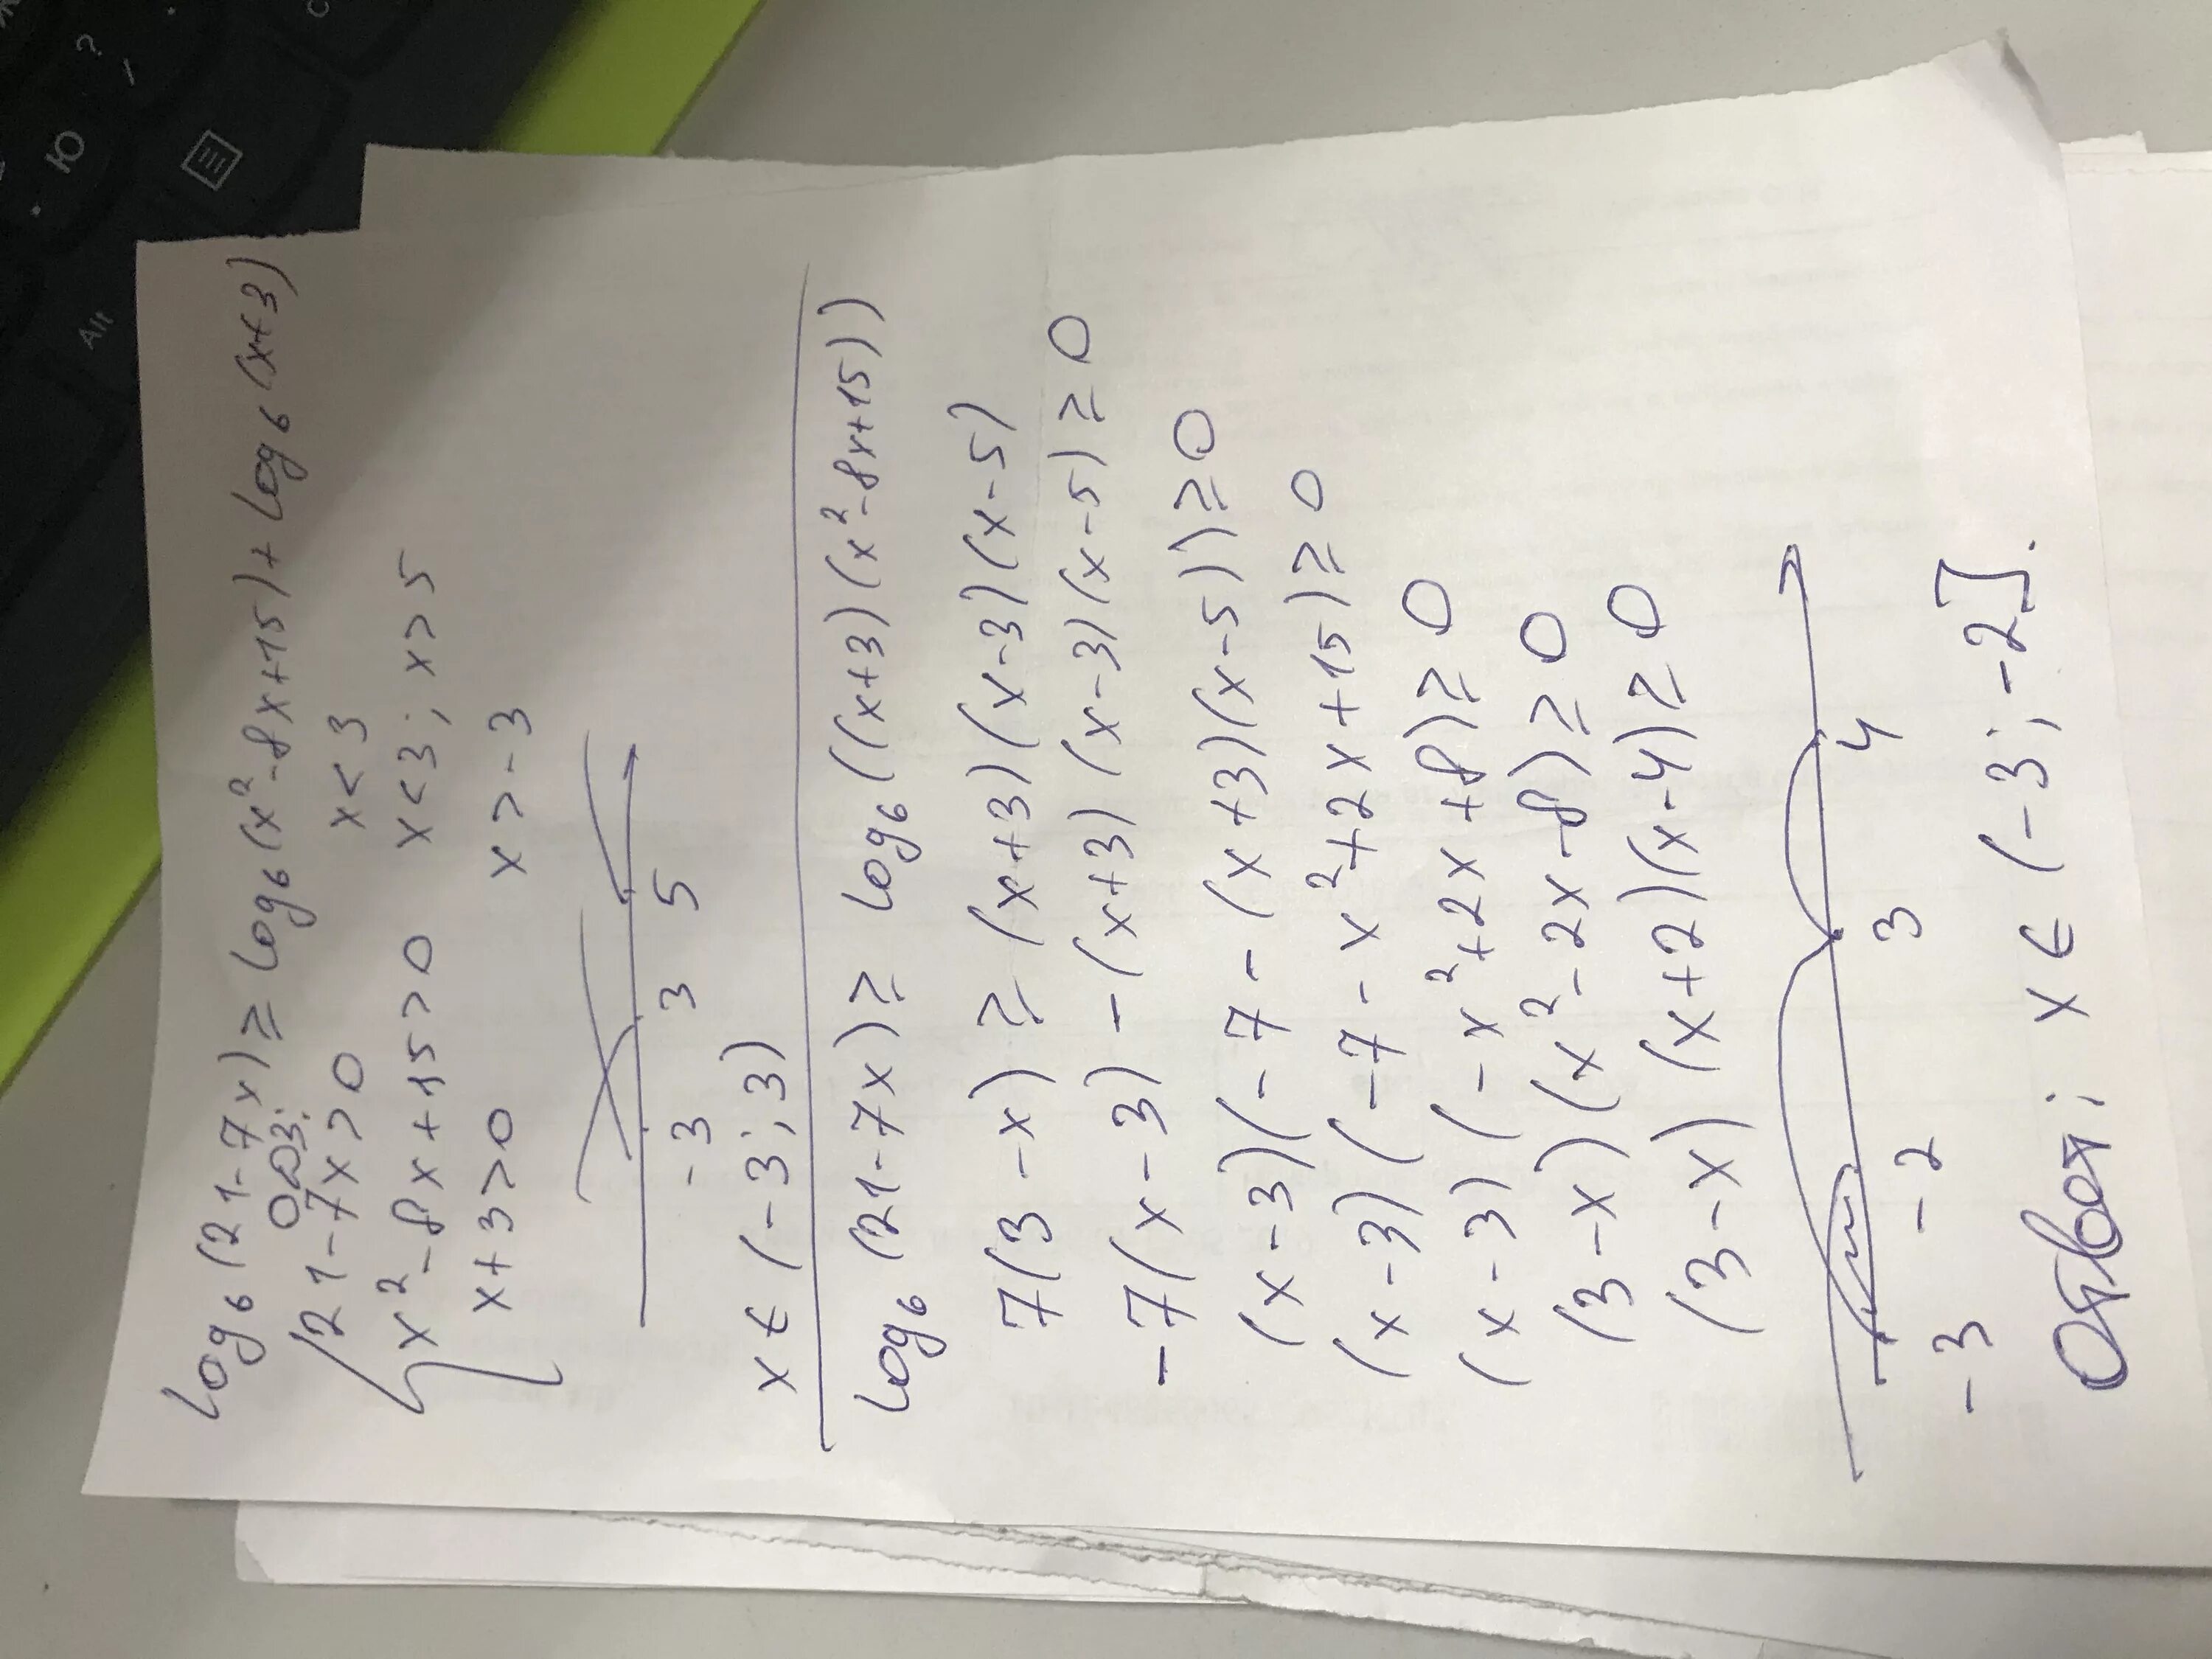 log₆(21-7x) ≥ log₆(x²-8x+15) + log₆(x+3)
ОДЗ:
21-7x>0 x<3
x²-8x+15>0 x<3; x>5
x+3>0 x>-3
-3 3 5
x ∈ (-3; 3)
log₆(21-7x) ≥ log₆((x+3)(x²-8x+15))
7(3-x) ≥ (x+3)(x-3)(x-5)
-7(x-3) - (x+3)(x-3)(x-5) ≥ 0
(x-3)(-7-(x+3)(x-5)) ≥ 0
(x-3)(-7-x²+2x+15) ≥ 0
(x-3)(-x²+2x+8) ≥ 0
(3-x)(x²-2x-8) ≥ 0
(3-x)(x+2)(x-4) ≥ 0
-3 -2 3 4
Ответ: x ∈ (-3; -2].
? /
. Ю
Alt